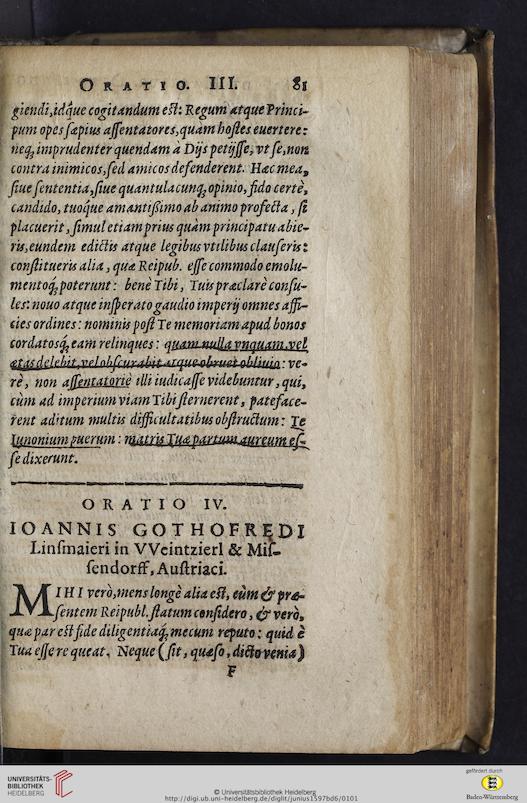 ORATIO. III. 81
giendi, idq́ue cogitandum est: Regum atque Princi-
pum opes sæpius assentatores, quàm hostes euertere:
neq́, imprudenter quendam à Dijs petijsse, vt se, non
contra inimicos, sed amicos defenderent. Hæc mea,
siue sententia, siue quantulacunq́, opinio, fido certè,
candido, tuoq́ue amantißimo ab animo profecta, si
placuerit, simul etiam prius quàm principatu abie-
ris, eundem edictis atque legibus vtilibus clauseris:
constitueris alia, quæ Reipub. esse commodo emolu-
mentoq́, poterunt: benè Tibi, Tuis præclarè consu-
les: nouo atque insperato gaudio imperij omnes affi-
cies ordines: nominis post Te memoriam apud bonos
cordatosq́, eam relinques: quam nulla vnquam vel
ætas delebit, vel obscurabit atque obruet obliuio: ve-
rè, non assentatoriè illi iudicasse videbuntur, qui,
cùm ad imperium viam Tibi sternerent, pateface-
rent aditum multis difficultatibus obstructum: Te
Iunonium puerum: matris Tuæ partum aureum es-
se dixerunt.
ORATIO IV.
IOANNIS GOTHOFREDI
Linsmaieri in VVeintzierl & Mis-
sendorff, Austriaci.
MIHI verò, mens longè alia est, cùm & præ-
sentem Reipubl. statum considero, & verò,
quæ par est fide diligentiaq́, mecum reputo: quid è
Tua esse re queat. Neque (sit, quæso, dicto venia)
F
UNIVERSITÄTS-
BIBLIOTHEK
HEIDELBERG
© Universitätsbibliothek Heidelberg
http://digi.ub.uni-heidelberg.de/diglit/junius1597bd6/0101
gefördert durch
Baden-Württemberg